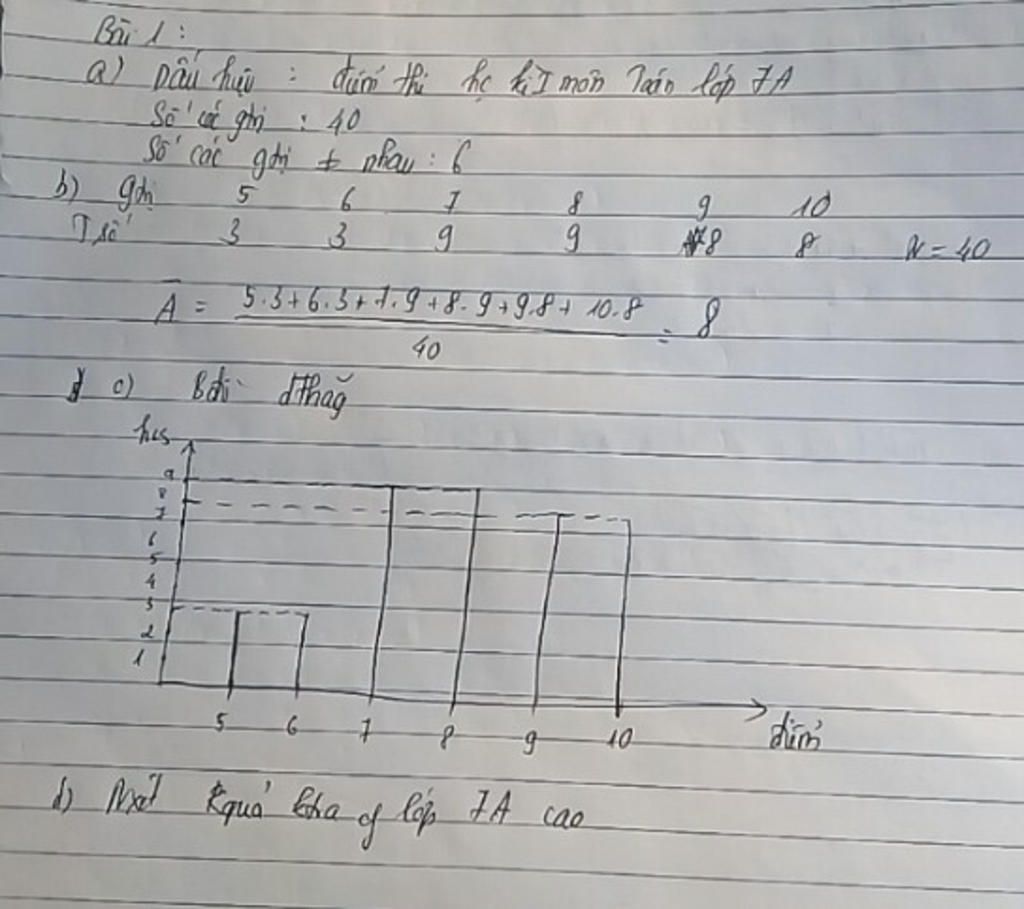 Bài 1 :
a) Dấu hiệu : điểm thi học kì I môn Toán lớp 7A
Số các gtrị : 40
Số các gtrị ≠ nhau : 6
b) gtrị 5 6 7 8 9 10
T số 3 3 9 9 8 8 N = 40
A = 5.3+6.3+7.9+8.9+9.8+10.8
40
= 8
c) Bđồ đthẳg
hcs
9
8
7
6
5
4
3
2
1
5 6 7 8 9 10 điểm
d) Nxét Kquả ktra of lớp 7A cao